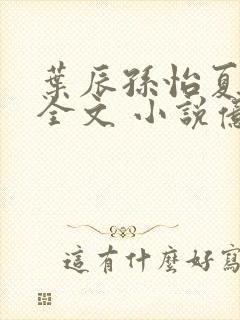 葉辰孫怡夏
全文 小說億
這有什麼好寫